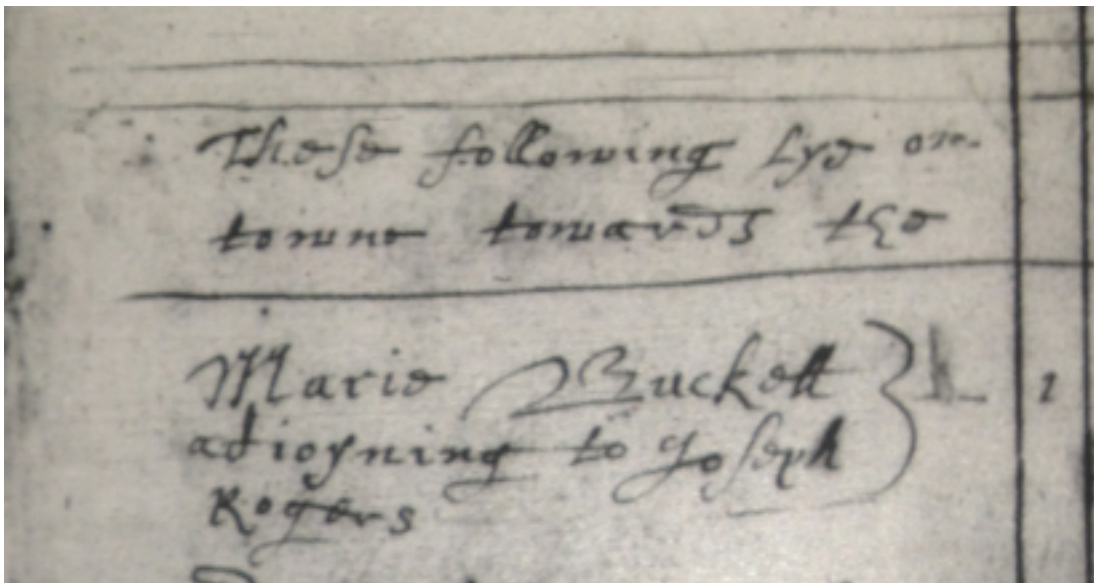 These following lye on
towne towards the
Marie Buckett 1
adioyning to Joseph
Rogers